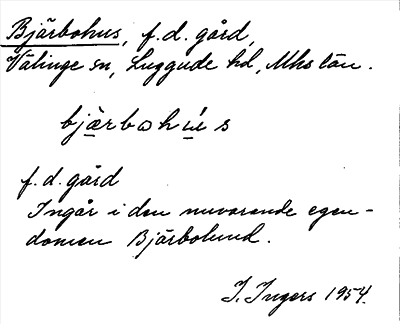 Bjärbohus, f.d. gård,
Välinge sn, Luggude hd, Mhs län.
bjàrbohu̇́s
f.d. gård
Ingår i den nuvarande egen-
domen Bjärbolund.
I. Ingers 1954.